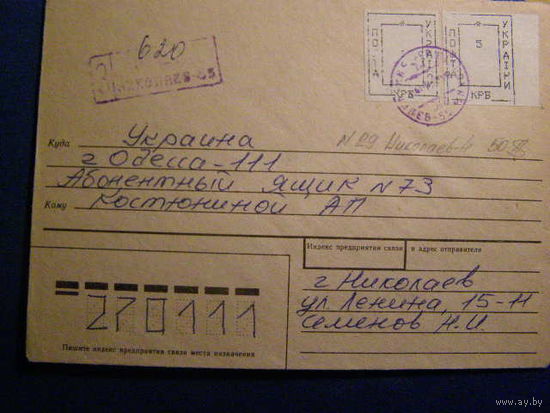 620
З НИКОЛАЕВ-55
ПОШТА УКРАЇНИ
КРБ
ПОШТА УКРАЇНИ
5
КРБ
Куда Украина
N 29 Николаев-4 50
г Одесса-111
Абонентный ящик N 73
Кому Костюниной АП
Индекс предприятия связи и адрес отправителя
г Николаев
ул Ленина, 15-11
Семенов Н.И
270111
Пишите индекс предприятия связи места назначения
www.ay.by